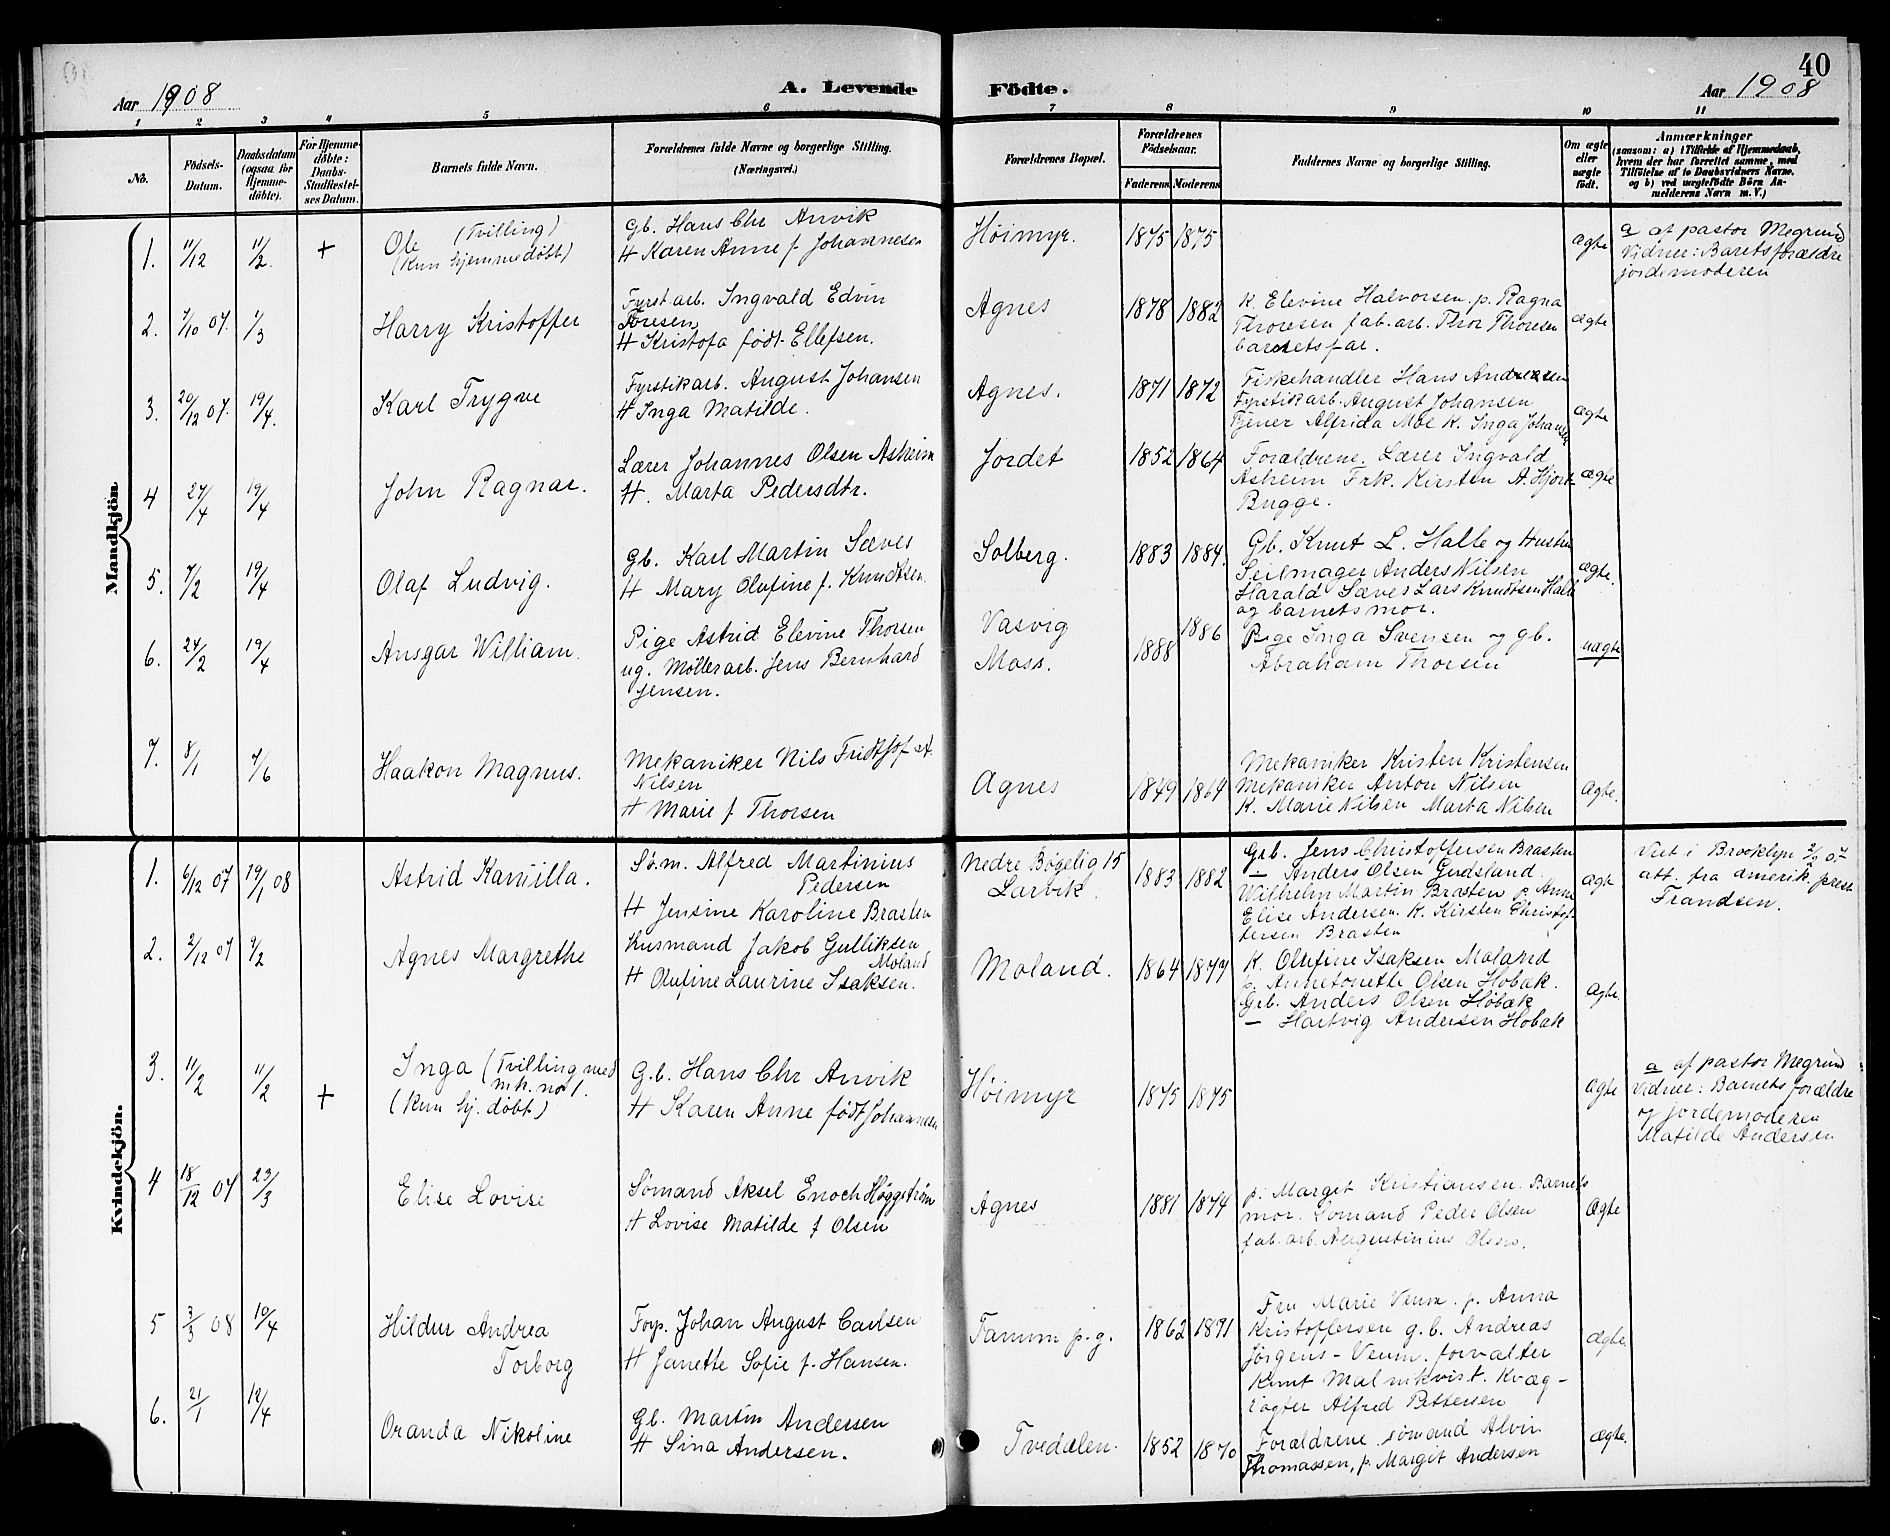 40
Aar 1908
A. Levende
Födte.
Aar 1908
1 2 3 4 5 6 7 8 9 10 11
No.
Födsels-
Datum.
Daabsdatum
(ogsaa for
Hjemme-
döbte).
For Hjemme-
döbte:
Daabs-
Stadfæstel-
ses Datum.
Barnets fulde Navn.
Forældrenes fulde Navne og borgerlige Stilling.
(Næringsvei.)
Forældrenes Bopæl.
Forældrenes
Födselsaar.
Faderens Moderens
Faddernes Navne og borgerlige Stilling.
Om ægte
eller
uægte
födt.
Anmærkninger
(saasom: a) i Tilfælde af Hjemmedaab,
hvem der har forrettet samme, med
Tilföielse af to Daabsvidners Navne,
og b) ved uægtefödte Börn An-
melderens Navn m. V.)
Mandkjön
1. 11/12 11/2. +
Ole (Tvilling)
(Kun hjemmedøbt)
Gb. Hans Chr Anvik
H Karen Anne f. Johannesen
Høimyr. 1875 1875
ægte
a af pastor Megrund
Vidner: Barets forældre
jordemoderen
2. 7/10 07. 1/3
Harry Kristoffer
Fyrst.arb. Ingvald Edvin
Toresen
H Kristofa født Ellefsen.
Agnes 1878 1882
K. Elevine Halvorsen. p. Ragna
Thoresen fab. arb. Thor Thoresen
barnets far.
ægte
3. 20/12 07. 19/4.
Karl Trygve
Fyrstikarb. August Johansen
H Inga Matilde.
Agnes. 1871 1872
Fiskehandler Hans Andresen
Fyrstikarb. August Johansen
Tjener Alfrida Moe K. Inga Johansen
ægte
4 27/4 19/4
John Ragnar.
Lærer Johannes Olsen Asheim
H. Marta Pedersdtr.
Jordet 1852 1864
Forældrene. Lærer Ingvald
Asheim Frk. Kirsten A. Hjort
Bugge.
ægte
5. 7/2 19/4
Olaf Ludvig.
Gb. Karl Martin Sæves
H Mary Olufine f. Knudtsen.
Solberg. 1883 1884.
Gb. Knut L. Halle og Hustru
Seilmager Anders Nilsen
Harald Sæves Lars Knudtsen Halle
og barnets mor.
ægte.
6. 24/2 19/4
Ansgar William.
Pige Astrid Elevine Thorsen
ug. Møllerarb. Jens Bernhard
Jensen.
Vasvig
Moss.
1888 1886
Pige Inga Svensen og gb.
Abraham Thorsen
uægte
7. 8/1 7/6
Haakon Magnus.
Mekaniker Nils Fridtjof
Nilsen
H Marie f Thorsen
Agnes 1849 1864
Mekaniker Kristen Kristensen
Mekaniker Anton Nilsen
K. Marie Nilsen Marta Nilsen
ægte.
Kvindekjön.
1. 6/12 07 19/1 08
Astrid Kamilla.
Søm. Alfred Martinius
Pedersen
H Jensine Karoline Brasten
Nedre Bøgelig 15
Larvik. 1883 1882
Grb. Jens Christoffersen Brasten
— Anders Olsen Gudsland.
Wilhelm Martin Brasten p. Anne
Elise Andersen. K. Kirsten Christof-
fersen Brasten
ægt
Viet i Brooklyn 2/2 07
att. fra amerik. prest
Frandsen.
2. 2/12 07 9/2
Agnes Margrethe
Husmand Jakob Gulliksen
Moland
H Olufine Laurine Isaksen.
Moland. 1864 1877
K. Olufine Isaksen Moland
p. Annetonette Olsen Hobæk.
Grb. Anders Olsen Hobæk
— Hartvig Andersen Hobæk
ægte.
3. 11/2 11/2 +
Inga (Tvilling med
mk. no 1.
(Kun hj. døbt)
G.b. Hans Chr Anvik
H Karen Anne født Johannesen
Høimyr 1875 1875
ægte
a af pastor Megrund
Vidner: Barnets forældre
og jordemoderen
Matilde Andersen
4 18/12 07 23/3
Elise Lovise
Sømand Aksel Enoch Höggström
H Lovise Matilde f Olsen
Agnes 1881 1874
p. Margit Kristiansen. Barnets
mor. Sømand Peder Olsen
fab. arb. Augustinius Olsen.
Ægte
5 3/3 08 10/4
Hildur Andrea
Torborg
Forp. Johan August Carlsen
H Janette Sofie f. Hansen.
Tanum p.g. 1862 1871
Fru Marie Veum. p. Anna
Kristoffersen g.b. Andreas
Jørgens- Veum. forvalter
Knut Malmkvist. Kvæg-
røgter Alfred Pettersen
ægte.
6. 21/1 12/4
Oranda Nikoline
Gb. Martin Andersen
H Sina Andersen.
Tvedalen. 1852 1870
Forældrene. sømand Alvin
Thomassen, p. Margit Andersen
ægte.